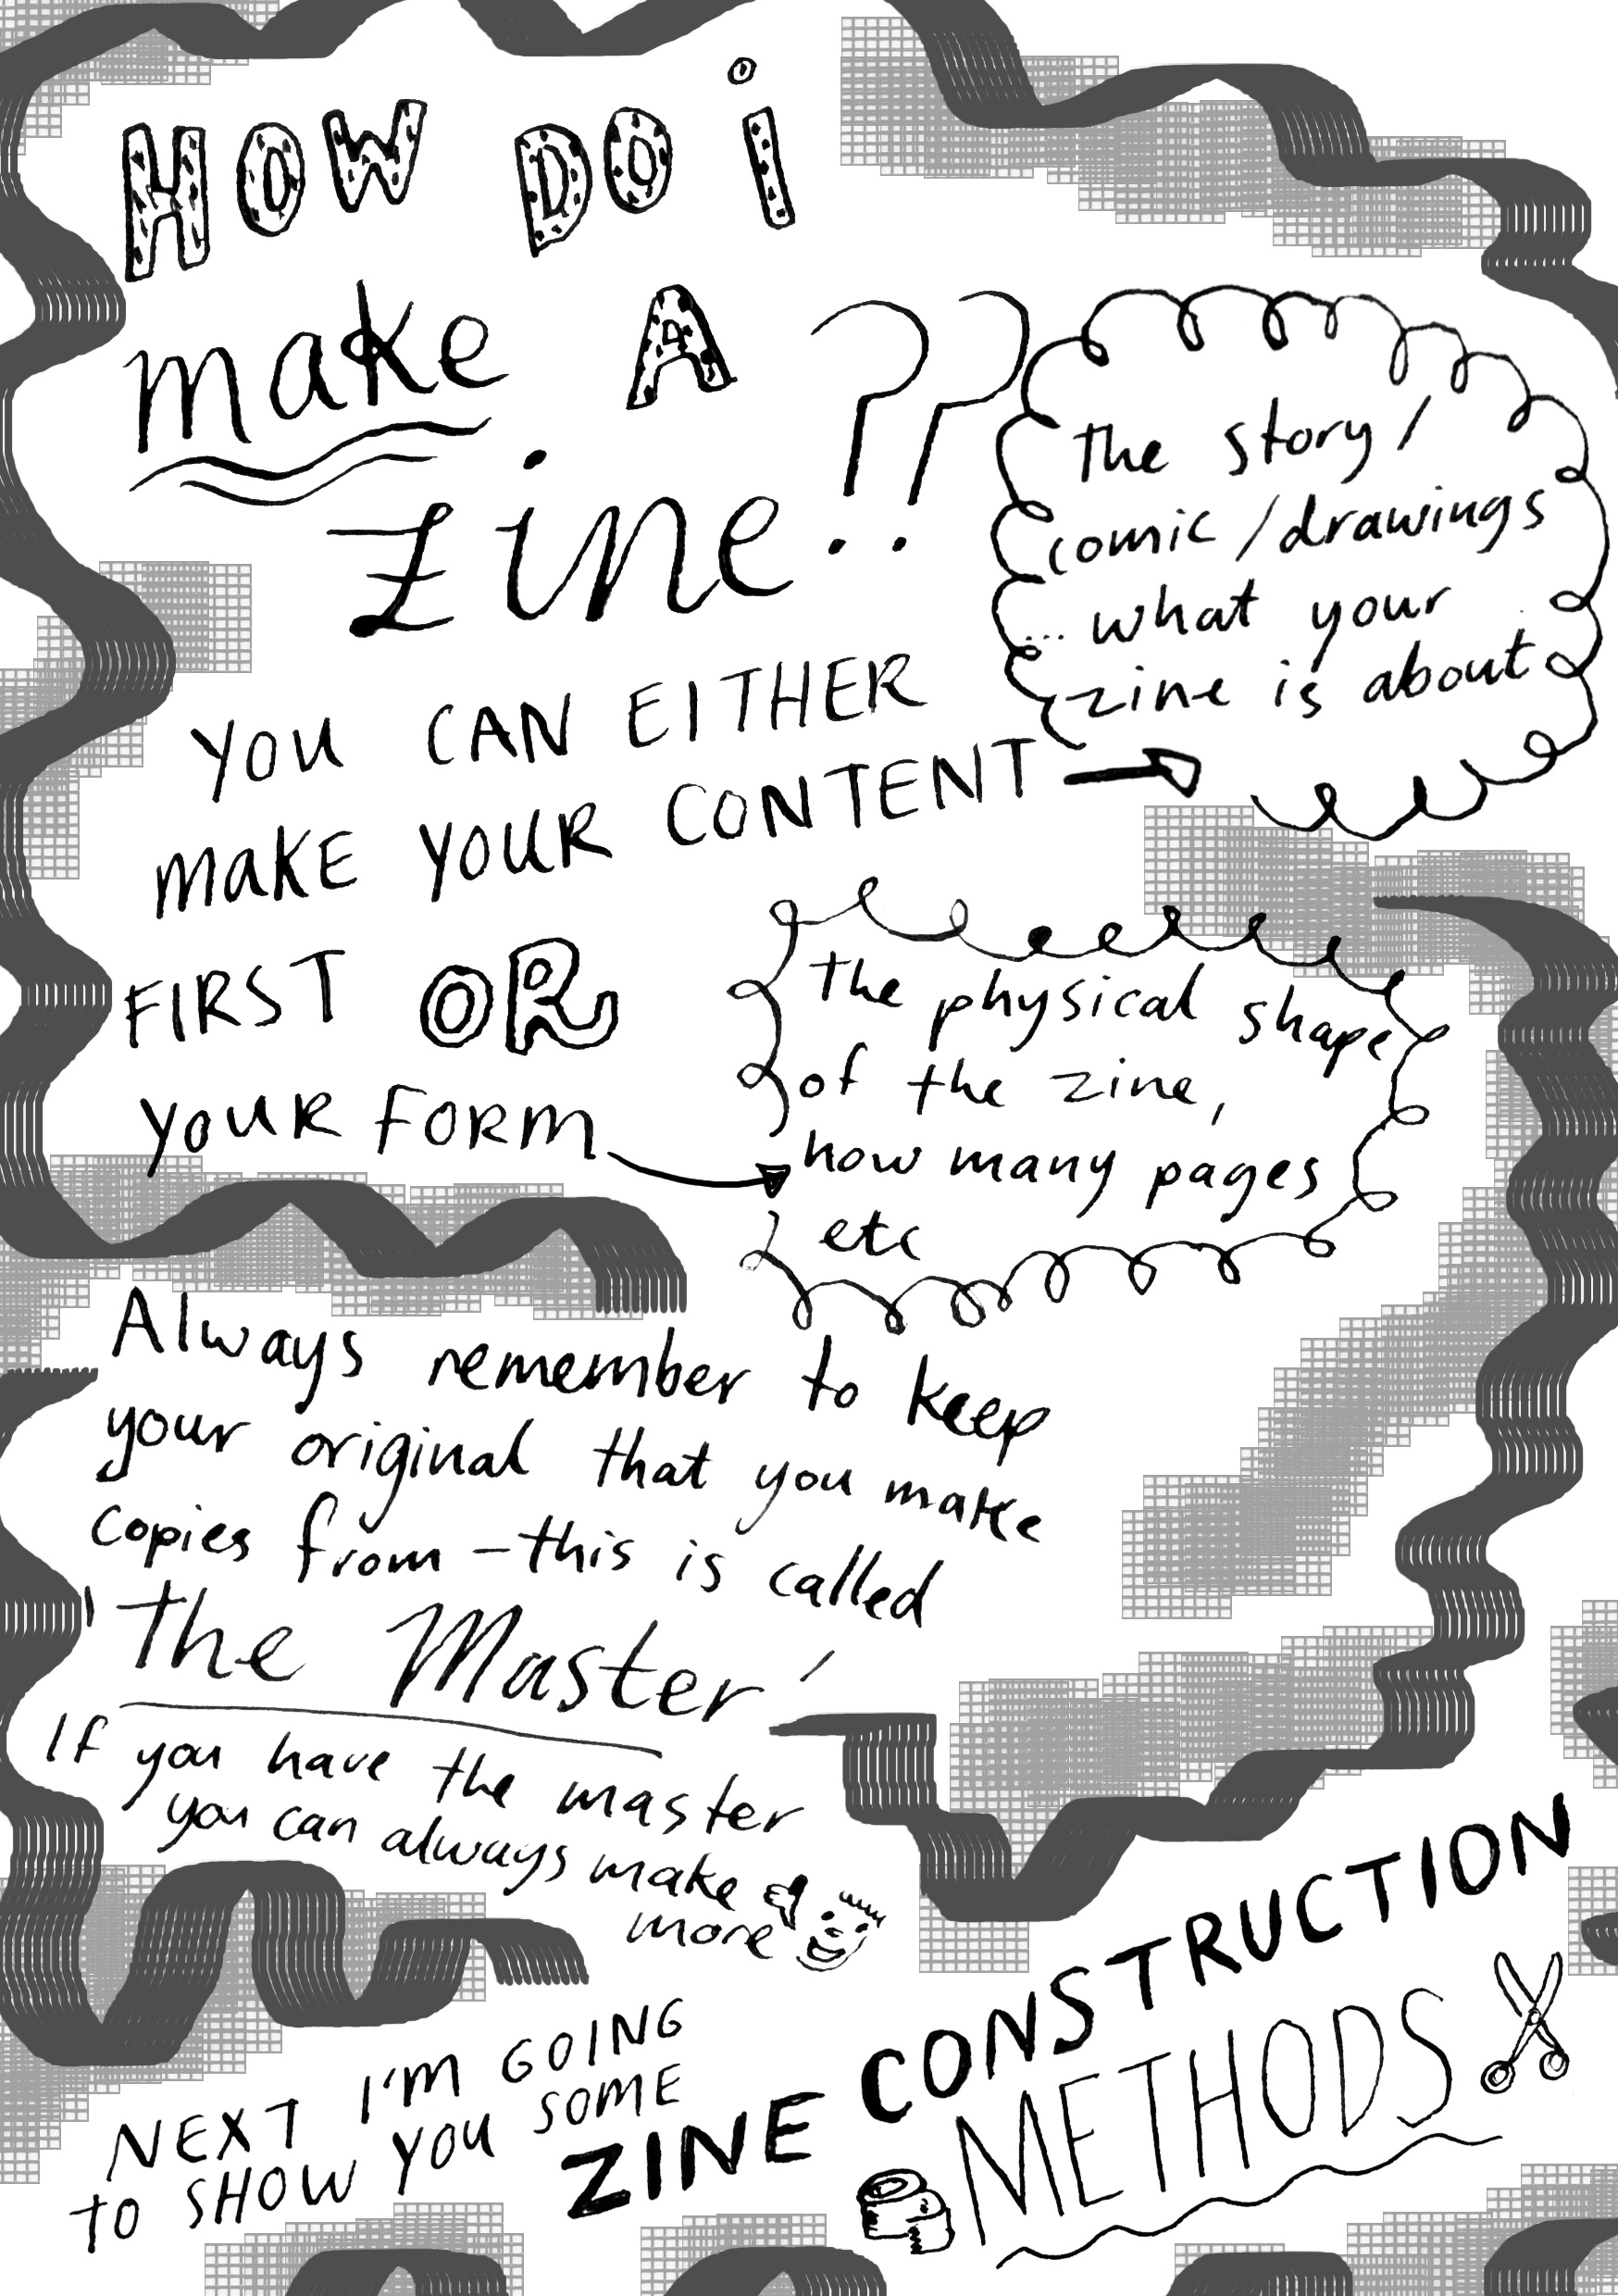 HOW DO i
make A
Zine??
YOU CAN EITHER
MAKE YOUR CONTENT
The story/
comic/drawings
... what your
zine is about
FIRST OR
YOUR FORM
the physical shape
of the zine,
how many pages
etc
Always remember to keep
your original that you make
copies from – this is called
'The Master'
If you have the master
you can always make
more
NEXT I'M GOING
TO SHOW YOU SOME
ZINE CONSTRUCTION
METHODS